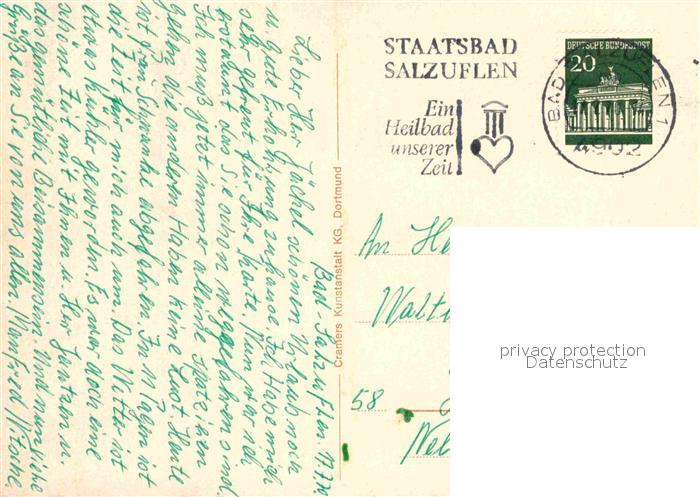 STAATSBAD
SALZUFLEN
Ein
Heilbad
unserer
Zeit
DEUTSCHE BUNDESPOST
20
BAD SALZUFLEN 1
4902
Bad-Salzuflen
Lieber Herr schönen Urlaub noch
u. gute Erholung zuhause. Ich habe mich
sehr gefreut für Ihre Karte. Nun
Sie schon weggefahren sind.
Ich muß jetzt immer alleine spatzieren
gehn. Die andern haben keine Lust. Heute
ist Frau abgefahren. In 11 Tagen ist
die Zeit für mich auch um. Das Wetter ist
etwas kühler geworden. Es war doch eine
schöne Zeit mit Ihnen u. Herr u.
das gemütliche Beisammensein. Und nun
Grüße an Sie von uns allen. Manfred
Cramers Kunstanstalt KG, Dortmund
An He
Walt
58
privacy protection
Datenschutz